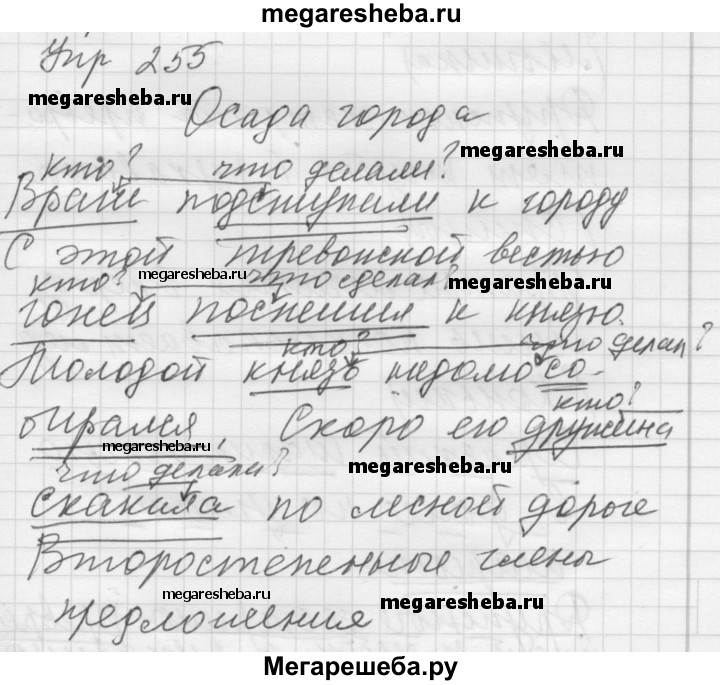 megaresheba.ru
Упр 255
megaresheba.ru
Осада города
кто? что делали? megaresheba.ru
Враги подступали к городу
С этой тревожной вестью
кто? megaresheba.ru что сделал? megaresheba.ru
гонец поспешил к князю.
кто? что делал?
Молодой князь недолго со-
кто?
бирался. Скоро его дружина
megaresheba.ru
что делала? megaresheba.ru
скакала по лесной дороге
Второстепенные члены
megaresheba.ru megaresheba.ru
предложения
Мегарешеба.ру